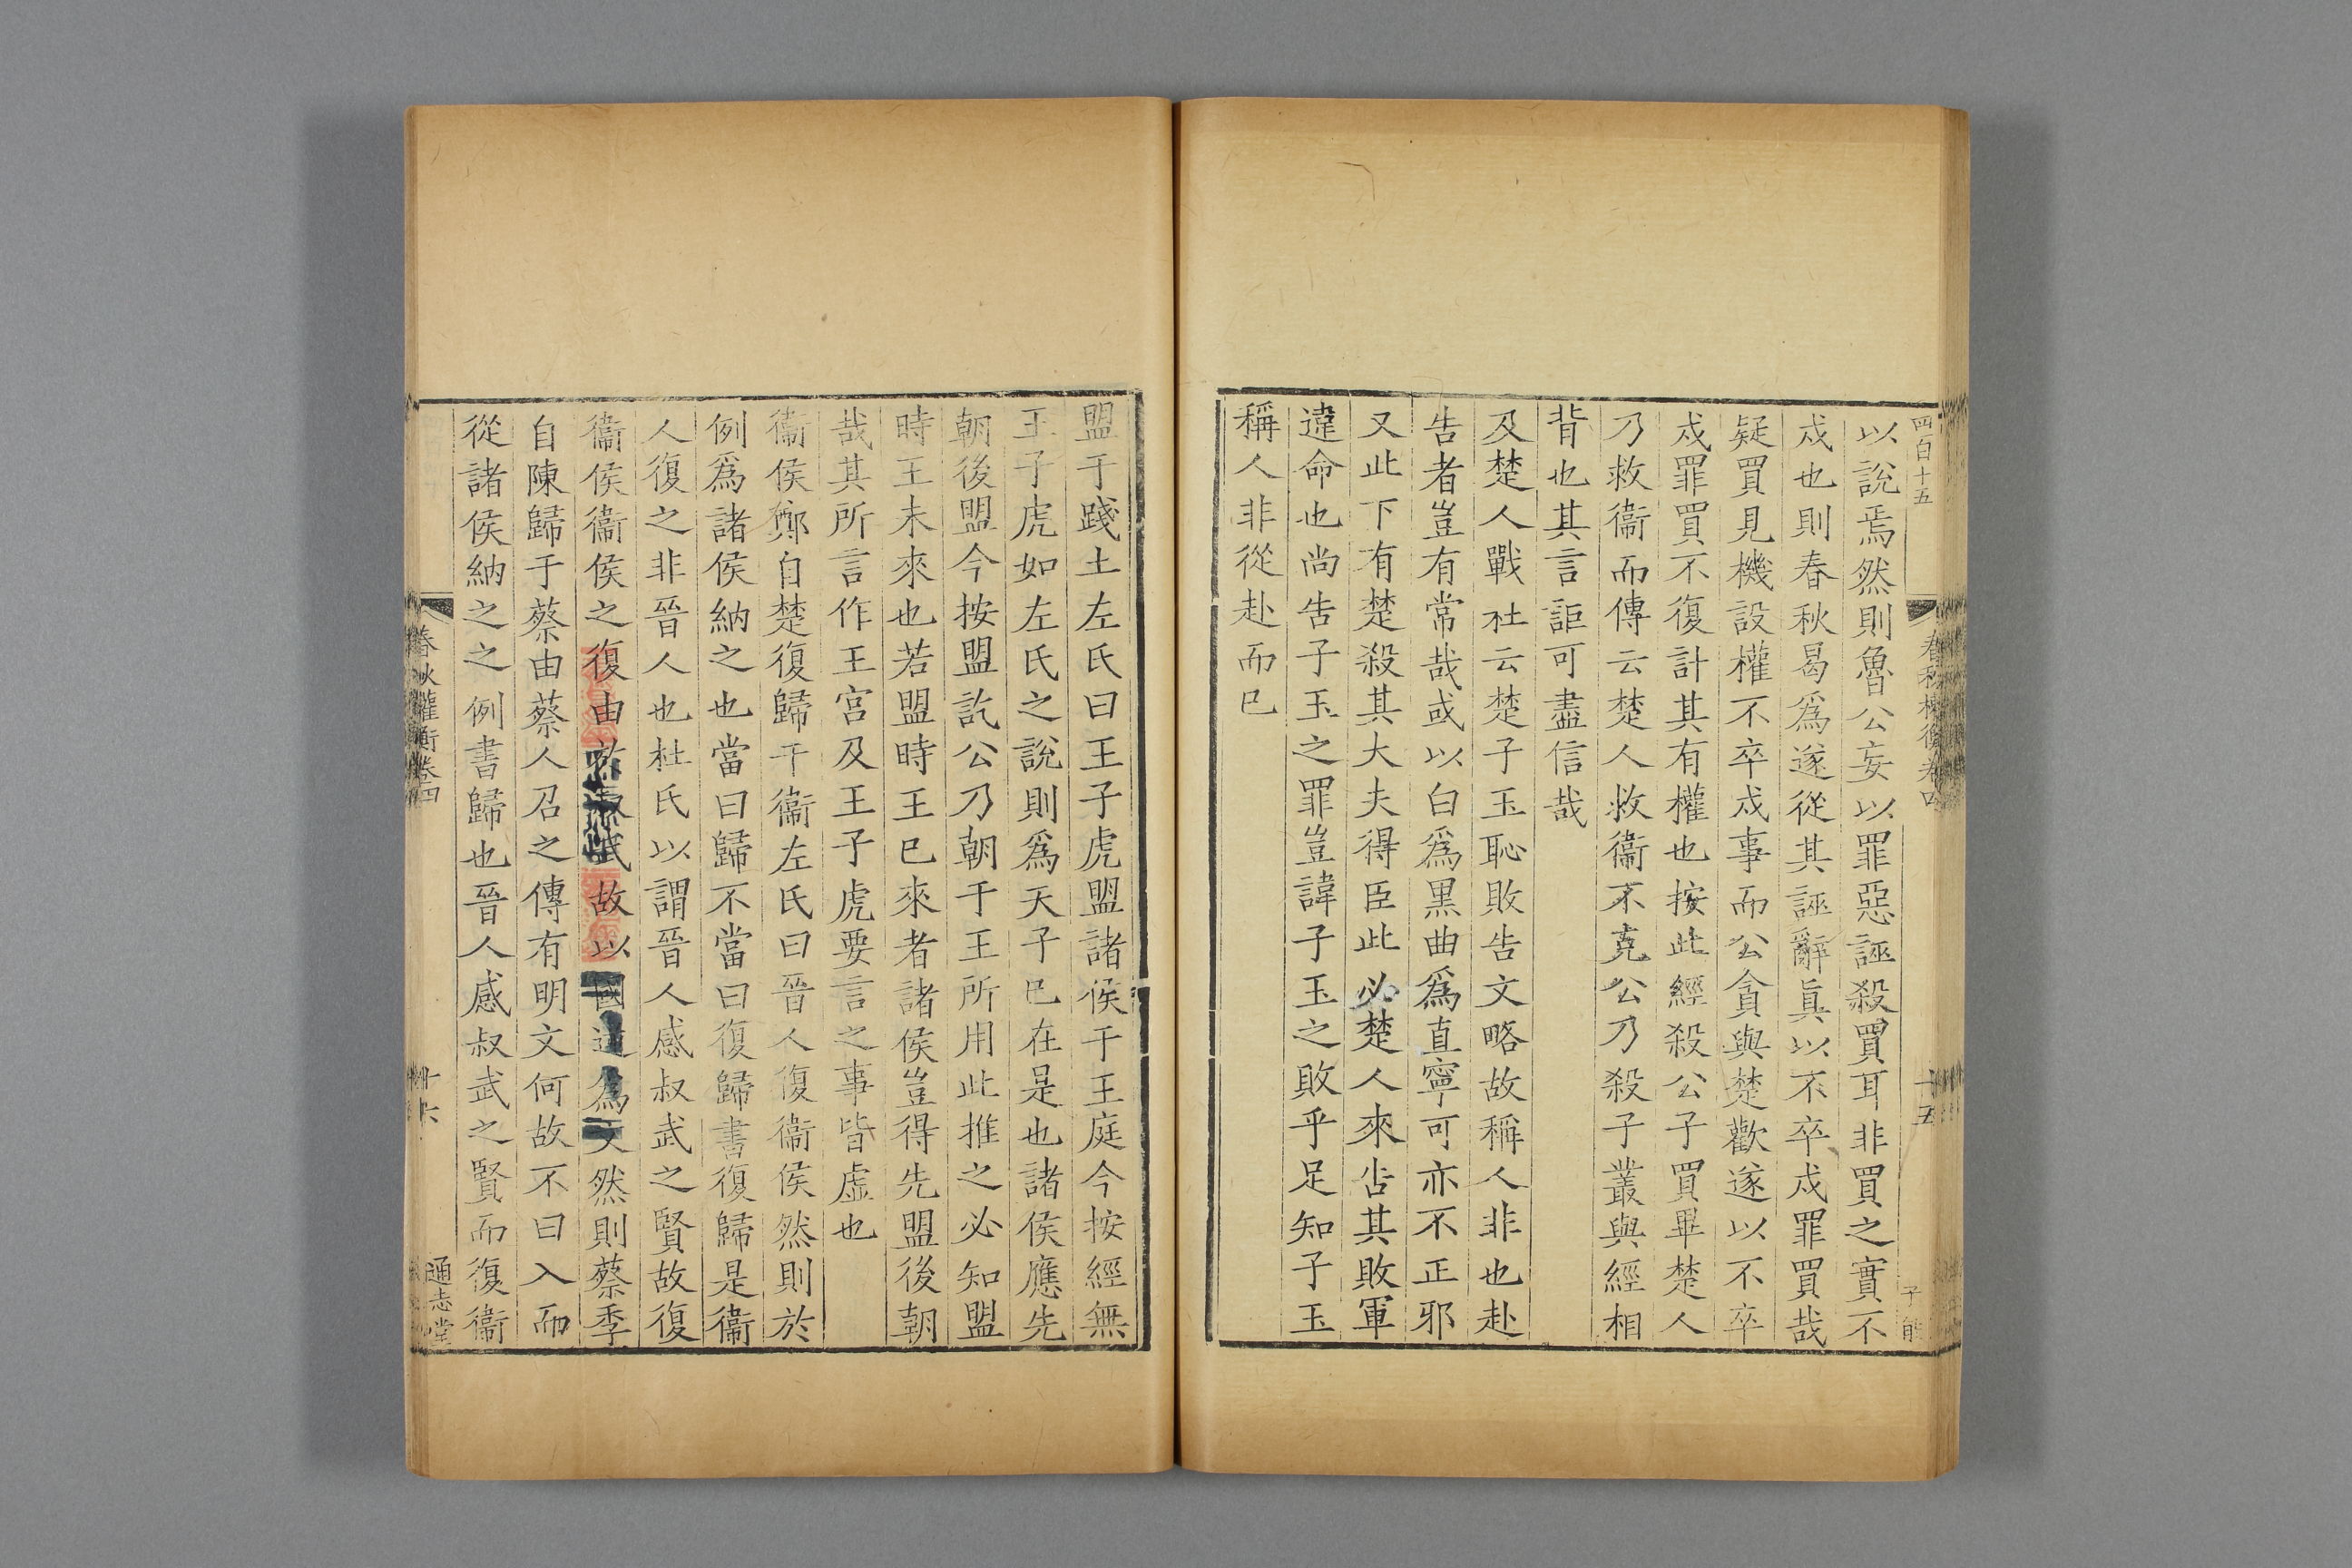 四百十五
春秋權衡卷四
十五
以說焉然則魯公妄以罪惡誣殺買耳非買之實不
戍也則春秋曷爲遂從其誣辭眞以不卒戍罪買哉
疑買見機設權不卒戍事而公貪與楚歡遂以不卒
戍罪買不復計其有權也按此經殺公子買畢楚人
乃救衞而傳云楚人救衞不克公乃殺子叢與經相
背也其言詎可盡信哉
及楚人戰杜云楚子玉恥敗告文略故稱人非也赴
告者豈有常哉或以白爲黑曲爲直寧可亦不正邪
又此下有楚殺其大夫得臣此必楚人來告其敗軍
違命也尚告子玉之罪豈諱子玉之敗乎足知子玉
稱人非從赴而已
盟于踐土左氏曰王子虎盟諸侯于王庭今按經無
王子虎如左氏之說則爲天子已在是也諸侯應先
朝後盟今按盟訖公乃朝于王所用此推之必知盟
時王未來也若盟時王已來者諸侯豈得先盟後朝
哉其所言作王宮及王子虎要言之事皆虛也
衞侯鄭自楚復歸于衞左氏曰晉人復衞侯然則於
例爲諸侯納之也當曰歸不當曰復歸書復歸是衞
人復之非晉人也杜氏以謂晉人感叔武之賢故復
衞侯衞侯之復由於叔武故以國逆爲文然則蔡季
自陳歸于蔡由蔡人召之傳有明文何故不曰入而
從諸侯納之之例書歸也晉人感叔武之賢而復衞
春秋權衡卷四
十六
通志堂